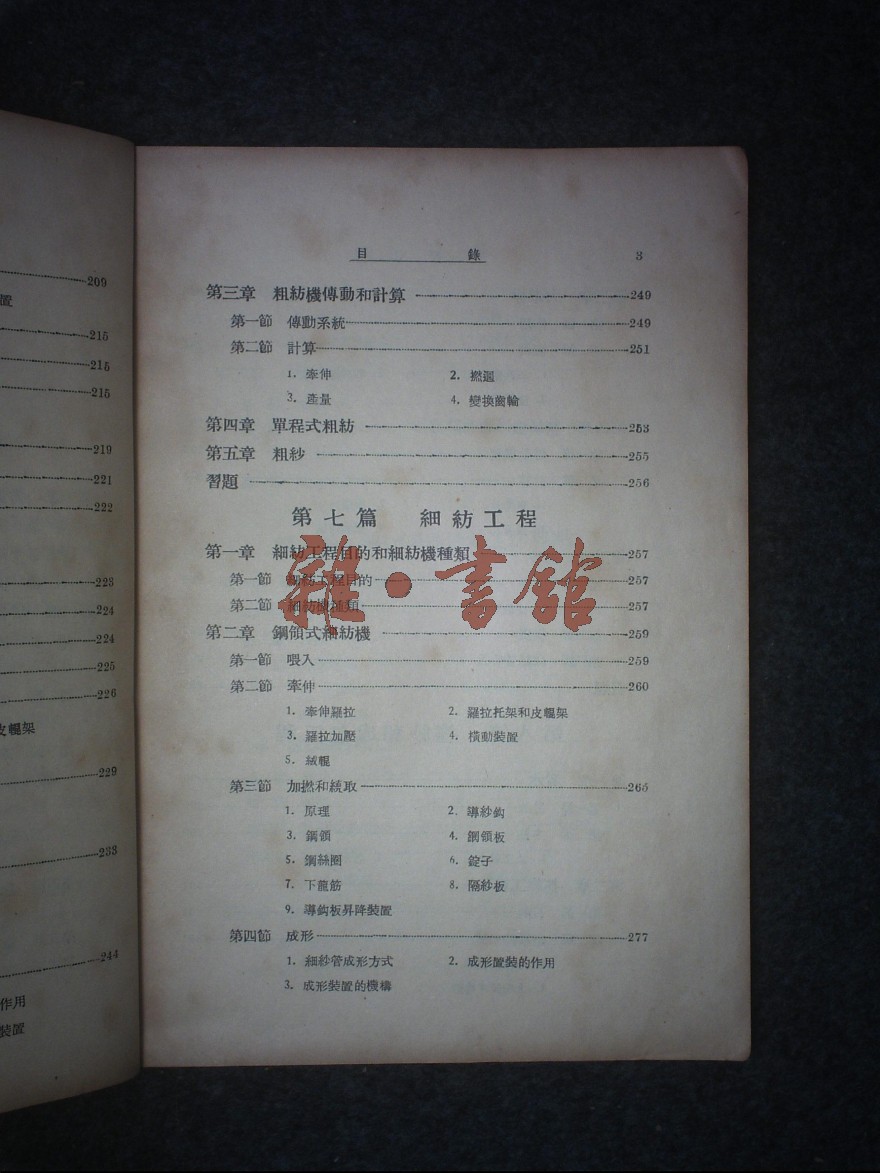 209
置
215
215
215
219
221
222
223
224
224
225
226
皮輥架
229
233
244
作用
裝置
目 錄 3
第三章 粗紡機傳動和計算 249
第一節 傳動系統 249
第二節 計算 251
1. 牽伸 2. 撚迴
3. 產量 4. 變換齒輪
第四章 單程式粗紡 253
第五章 粗紗 255
習題 256
第七篇 細紡工程
第一章 細紡工程目的和細紡機種類 257
第一節 細紡工程目的 257
第二節 細紡機種類 257
雜·書館
第二章 鋼領式細紡機 259
第一節 喂入 259
第二節 牽伸 260
1. 牽伸羅拉 2. 羅拉托架和皮輥架
3. 羅拉加壓 4. 橫動裝置
5. 絨輥
第三節 加撚和繞取 265
1. 原理 2. 導紗鈎
3. 鋼領 4. 鋼領板
5. 鋼絲圈 6. 錠子
7. 下龍筋 8. 隔紗板
9. 導鈎板昇降裝置
第四節 成形 277
1. 細紗管成形方式 2. 成形置裝的作用
3. 成形裝置的機構